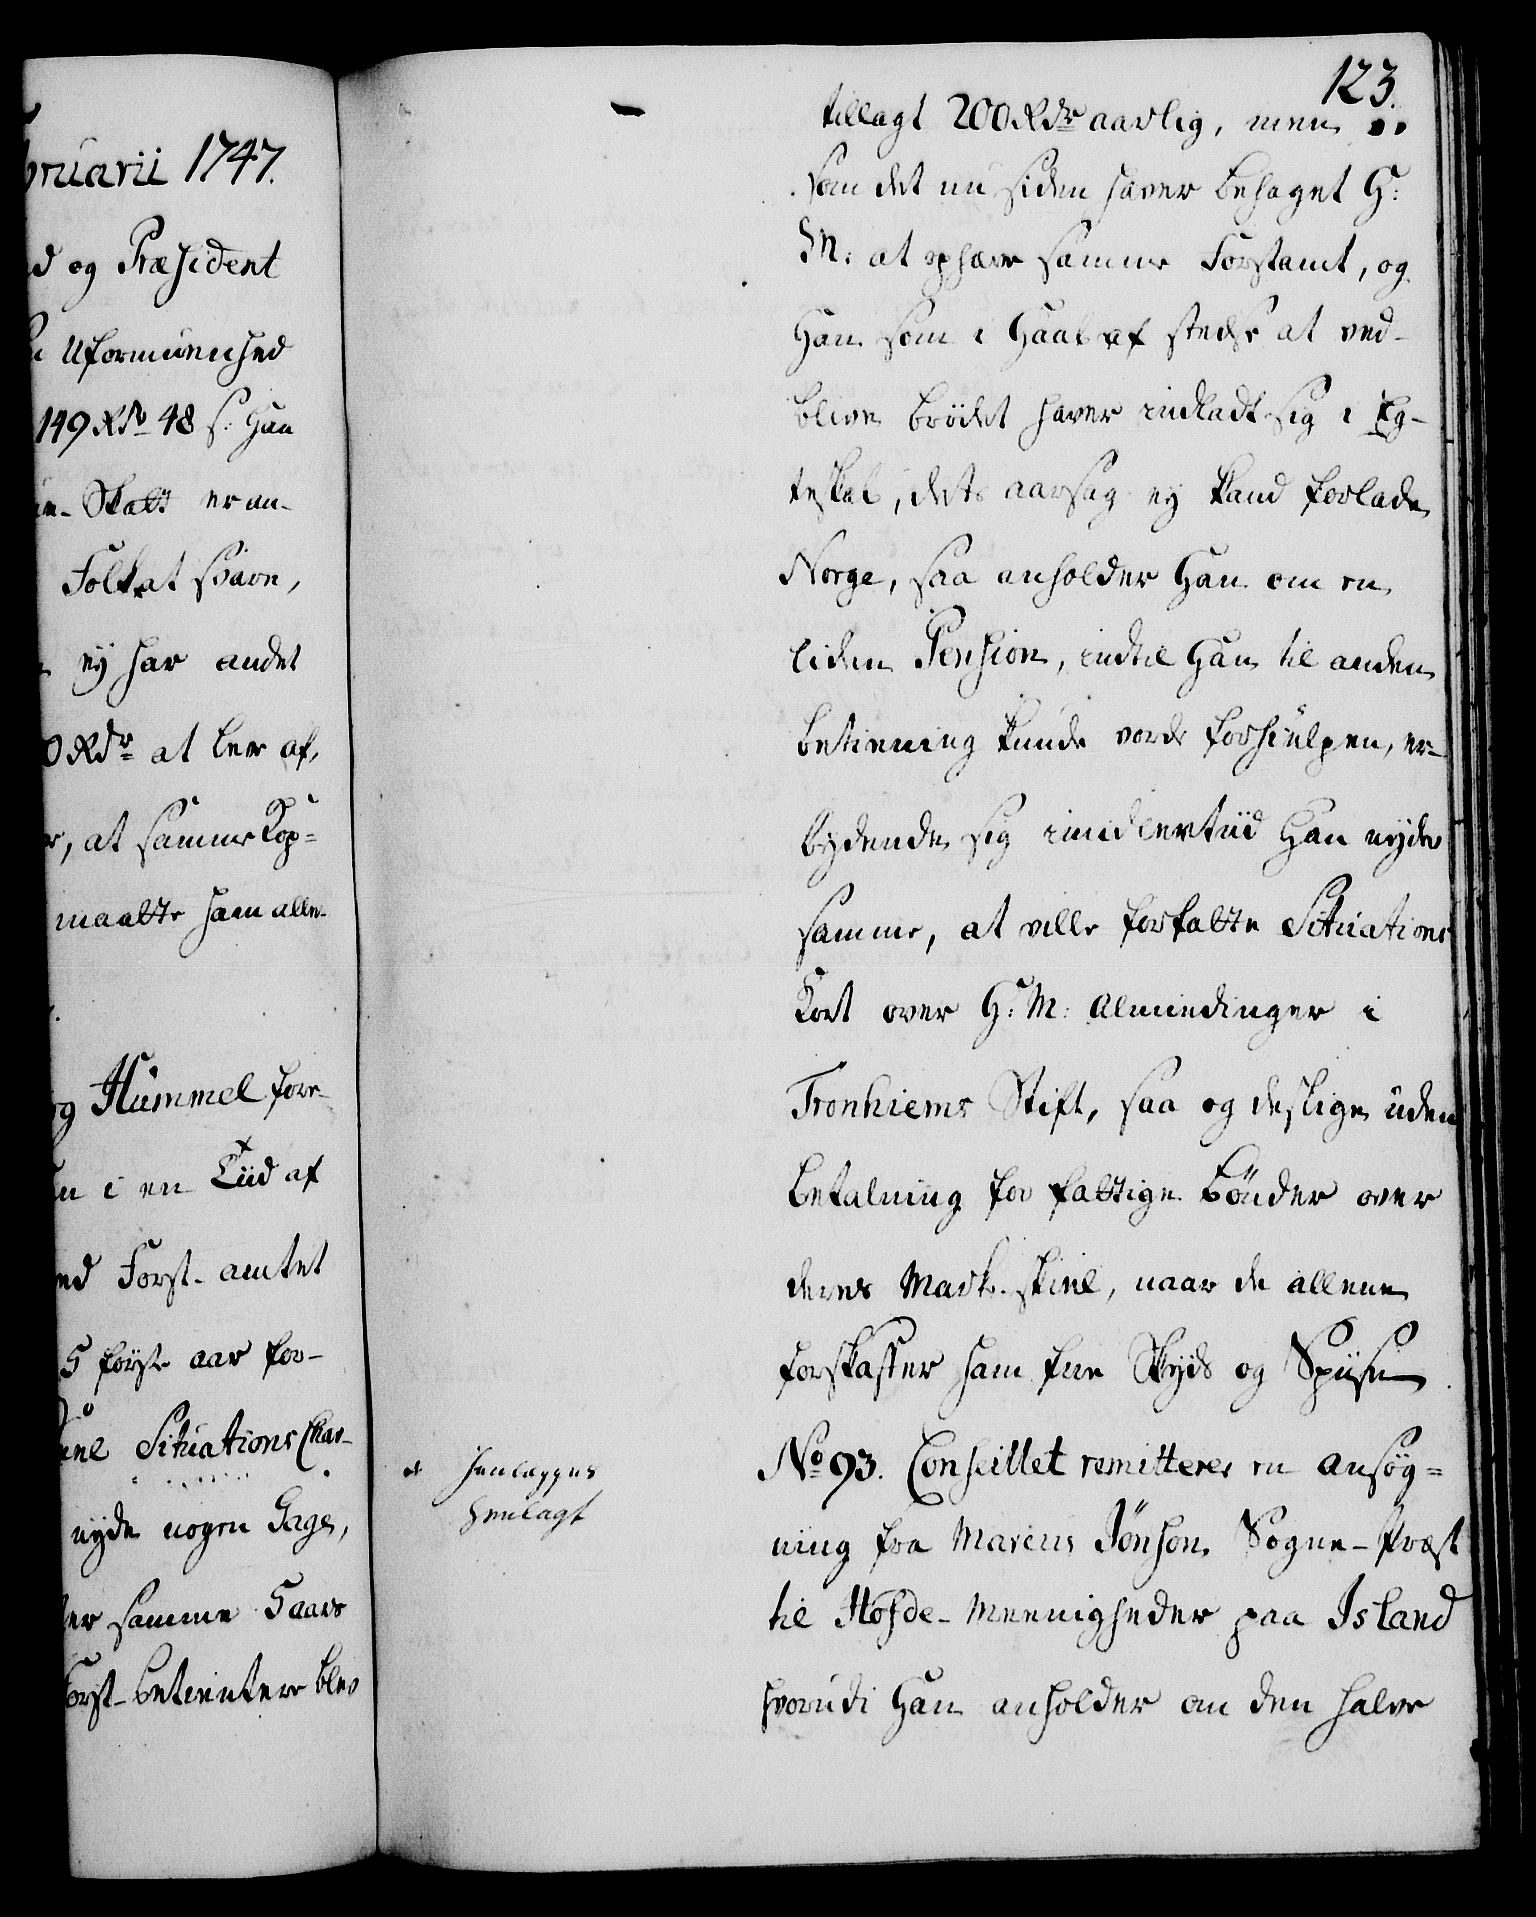 bruarii 1747.
d og Præsident
Uformuenhed
149 Rdr 48 s: Han
Skatt er an-
Folk at svare,
ey har andet
0 Rdr at leve af,
, at samme Kop-
maatte ham alle-
og Hummel fore-
i en Tiid af
ed Forst-amtet
5 første aar for-
Situations Char-
nyde nogen Gage,
er samme 5 aars
Forst-betientere blev
123.
tillagt 200 Rdr aarlig, men
som det nu siden haver behaget H:
M: at ophæve samme Forstamt, og
Han som i Haab af stedse at ved-
blive brödet haver indladt sig i Eg-
teskab, dets aarsag ey kand forlade
Norge, saa anholder Han om en
liden Pension, indtil Han til anden
betiening kunde vorde forhiulpen, er-
bydende sig imidlertiid Han nyder
samme, at ville forfatte Situations
Kort over H: M: Almindinger i
Tronhiems Stift, saa og deslige uden
betalning for fattige bönder over
deres Mark-skiel, naar de allene
forskaffer ham frie Skyds og Spiise
No 93. Conseillet remitterer en ansög-
ning fra Marcus Jönson Sogne-Præst
til Hofde-Meenigheder paa Island
hvorudi Han anholder om den halve
henlægges
henlagt